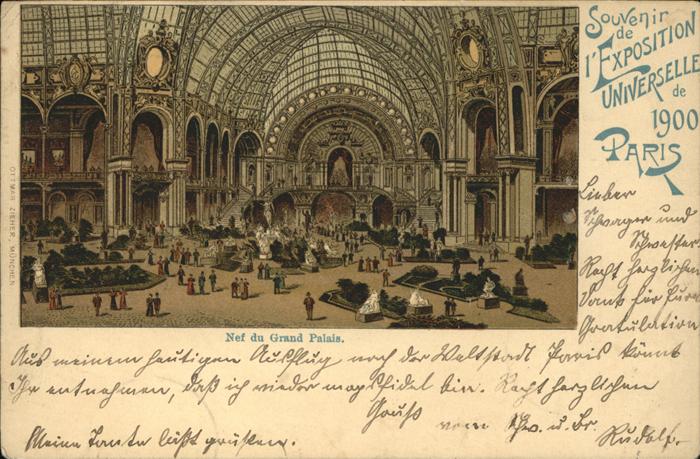 Souvenir
de
l'EXPOSITION
UNIVERSELLE
de
1900
PARIS
OTTMAR ZIEHER, MÜNCHEN
Nef du Grand Palais.
Lieber
Schwager und
Schwester
Recht herzlichen
Dank für Eure
Gratulation
Aus meinem heutigen Ausflug nach der Weltstadt Paris könnt
Ihr entnehmen, daß ich wieder mopsfidel bin. Recht herzlichen
Gruß vom Schw. u. Br.
Meine Tante läßt grüßen. Rudolf.